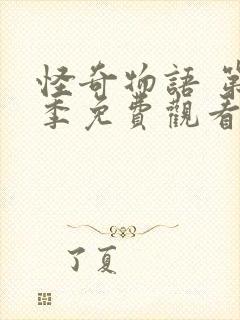 怪奇物語 第
季免費觀看
了夏